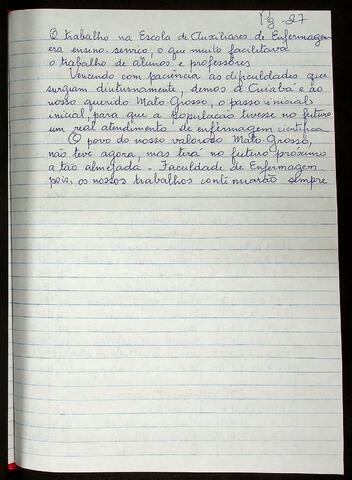 Pg - 27
O trabalho na Escola de Auxiliares de Enfermagem
era ensino-serviço, o que muito facilitava
o trabalho de alunos e professores
Vencendo com paciência as dificuldades que
surgiam diuturnamente, demos a Cuiabá e ao
nosso querido Mato-Grosso, o passo inicials
inicial, para que a população tivesse no futuro
um real atendimento de enfermagem científica
O povo do nosso valoroso Mato-Grosso,
não teve agora, mas terá no futuro próximo
a tão almejada - Faculdade de Enfermagem
pois, os nossos trabalhos continuarão sempre